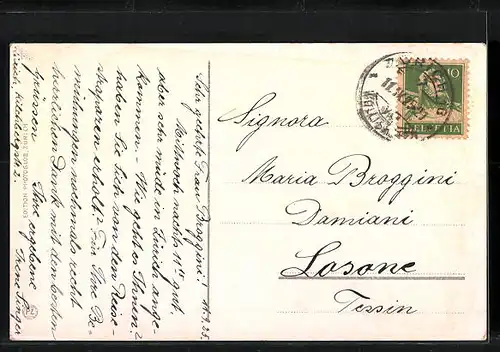 11.9.25.
Sehr geehrte Frau Broggini!
Mittwoch nachts 11 Uhr gut,
aber sehr müde in Zürich ange-
kommen. - Wie geht es Ihnen?
haben Sie sich von den Reise-
strapazen erholt? Für Ihre Be-
mühungen nochmals recht
herzlichen Dank mit den besten
Grüssen
Ihre ergebene
Irene
Zürich,
Signora
Maria Broggini
Damiani
Losone
Tessin
10
HELVETIA